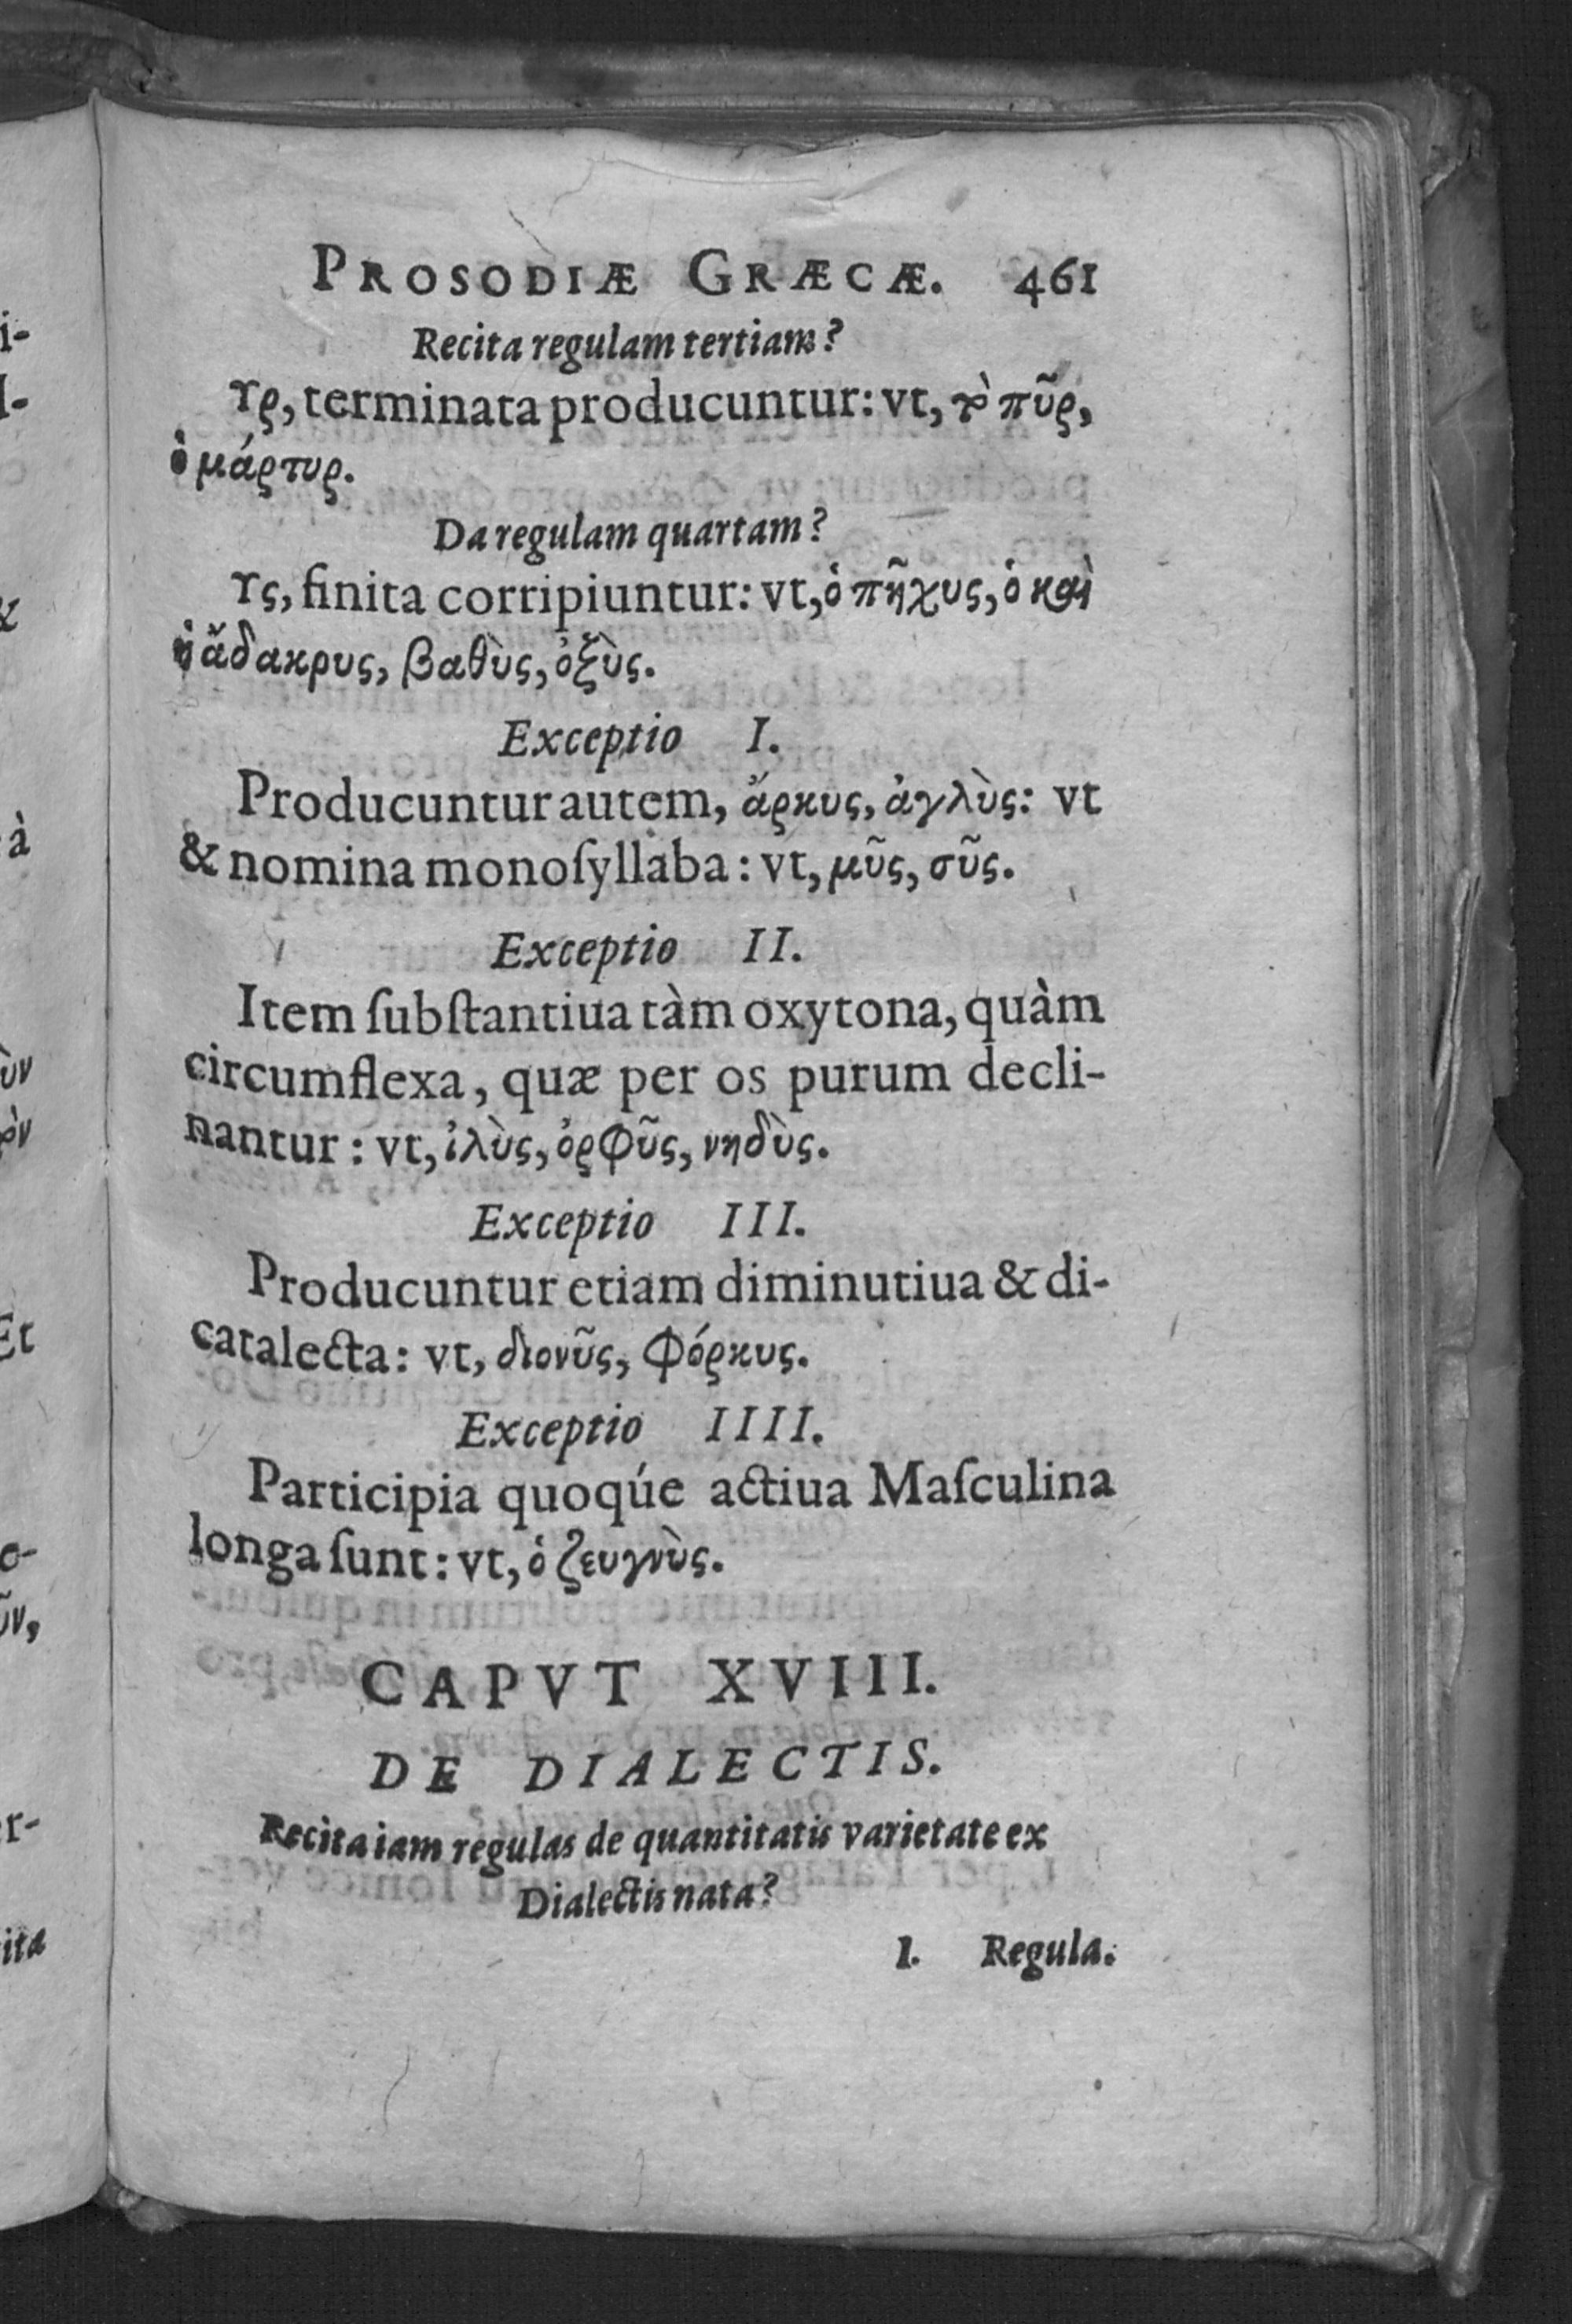 PROSODIÆ GRÆCÆ. 461
Recita regulam tertiam?
Υρ, terminata producuntur: vt, τὸ πῦρ,
ὁ μάρτυρ.
Da regulam quartam?
Υς, finita corripiuntur: vt, ὁ πῆχυς, ὁ καὶ
ἡ ἄδακρυς, βαθὺς, ὀξὺς.
Exceptio I.
Producuntur autem, ἄρκυς, ἀγλὺς: vt
& nomina monoſyllaba: vt, μῦς, σῦς.
Exceptio II.
Item ſubſtantiua tàm oxytona, quàm
circumflexa, quæ per os purum decli-
nantur: vt, ἰλὺς, ὀρφῦς, νηδὺς.
Exceptio III.
Producuntur etiam diminutiua & di-
catalecta: vt, διονῦς, φόρκυς.
Exceptio IIII.
Participia quoqúe actiua Maſculina
longa ſunt: vt, ὁ ζευγνὺς.
CAPVT XVIII.
DE DIALECTIS.
Recita iam regulas de quantitatis varietate ex
Dialectis nata?
1. Regula.